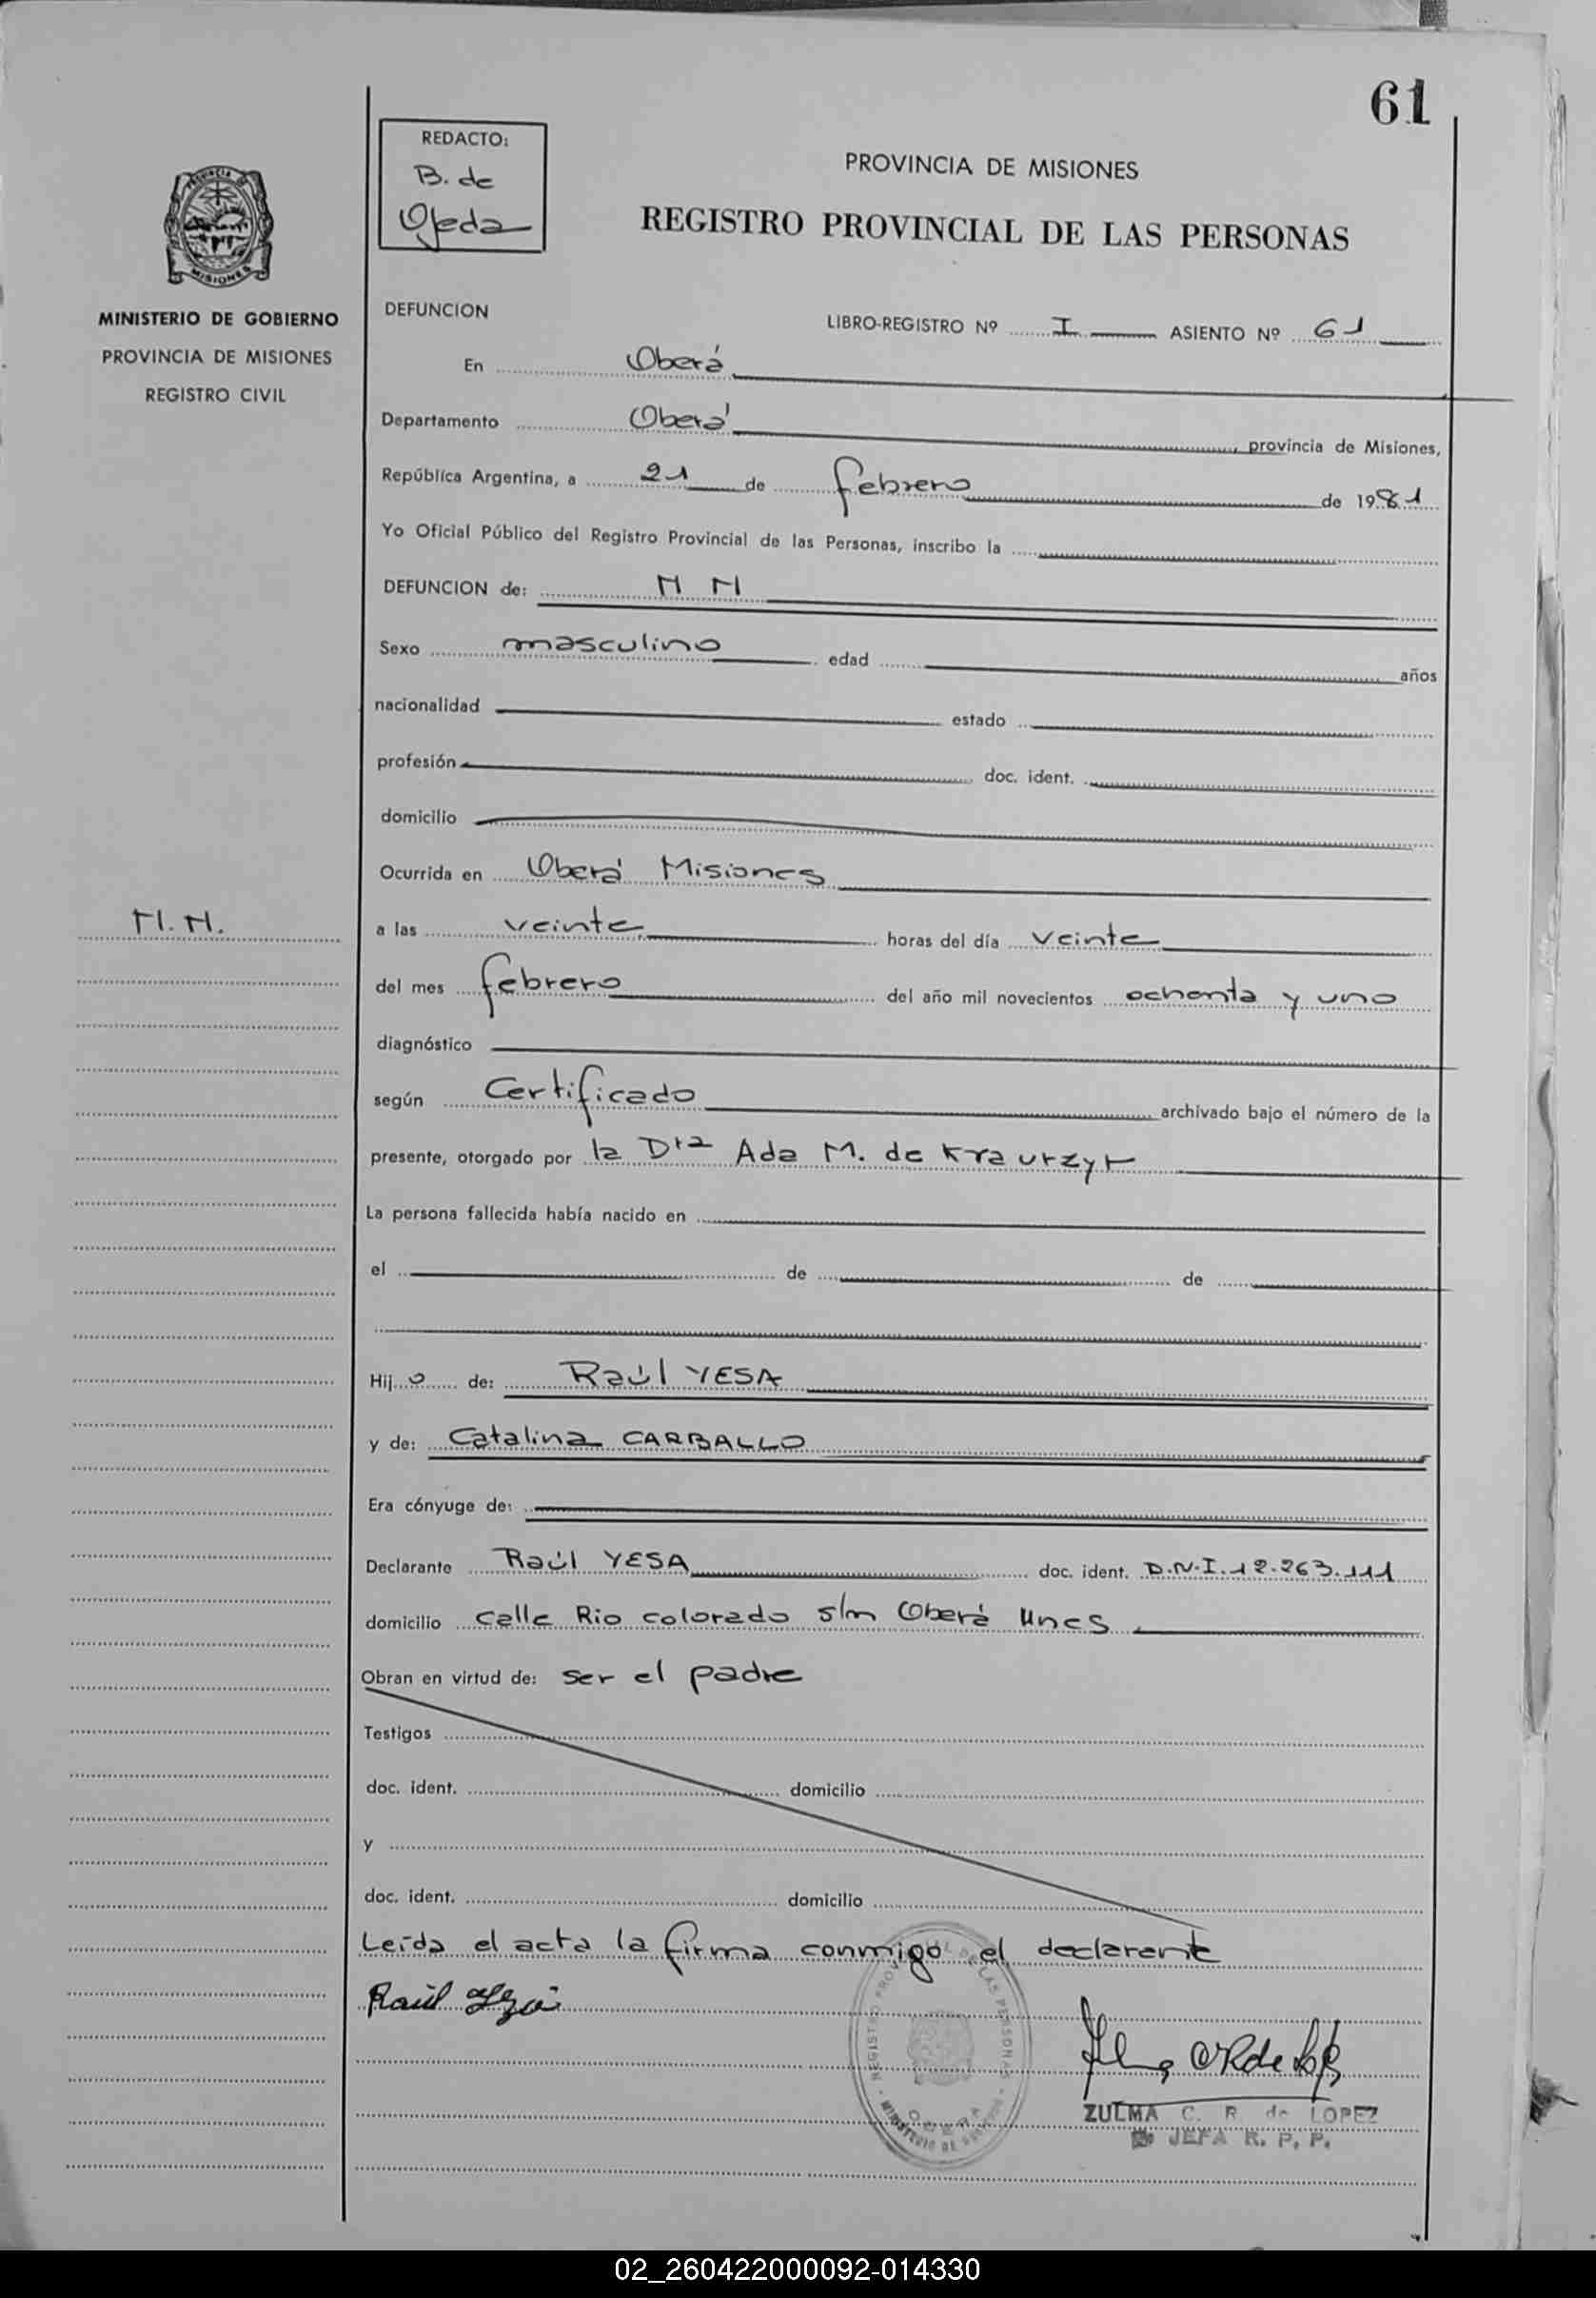 61
REDACTO:
B. de
Ojeda
PROVINCIA DE MISIONES
REGISTRO PROVINCIAL DE LAS PERSONAS
MINISTERIO DE GOBIERNO
PROVINCIA DE MISIONES
REGISTRO CIVIL
DEFUNCION
LIBRO-REGISTRO Nº I ASIENTO Nº 61
En Oberá
Departamento Oberá provincia de Misiones,
República Argentina, a 21 de febrero de 1981
Yo Oficial Público del Registro Provincial de las Personas, inscribo la
DEFUNCION de: N N
Sexo masculino edad años
nacionalidad estado
profesión doc. ident.
domicilio
Ocurrida en Oberá Misiones
N.N.
a las veinte horas del día veinte
del mes febrero del año mil novecientos ochenta y uno
diagnóstico
según Certificado archivado bajo el número de la
presente, otorgado por la Dra Ada M. de
La persona fallecida había nacido en
el de de
Hijo de: Raúl YESA
y de: Catalina CARBALLO
Era cónyuge de:
Declarante Raúl YESA doc. ident. D.N.I. 12.263.111
domicilio calle Rio colorado s/n Oberá Mnes
Obran en virtud de: ser el padre
Testigos
doc. ident. domicilio
y
doc. ident. domicilio
Leída el acta la firma conmigo el declarante
Raúl
REGISTRO PROVINCIAL DE LAS PERSONAS
OBERA
MINISTERIO DE GOBIERNO
ZULMA C. R. de LOPEZ
JEFA R. P. P.
02_260422000092-014330